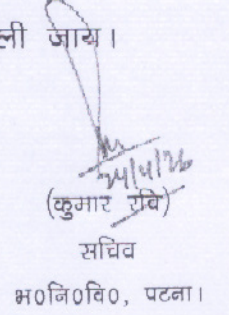 ली जाय।
24/4/26
(कुमार रवि)
सचिव
भ०नि०वि०, पटना।